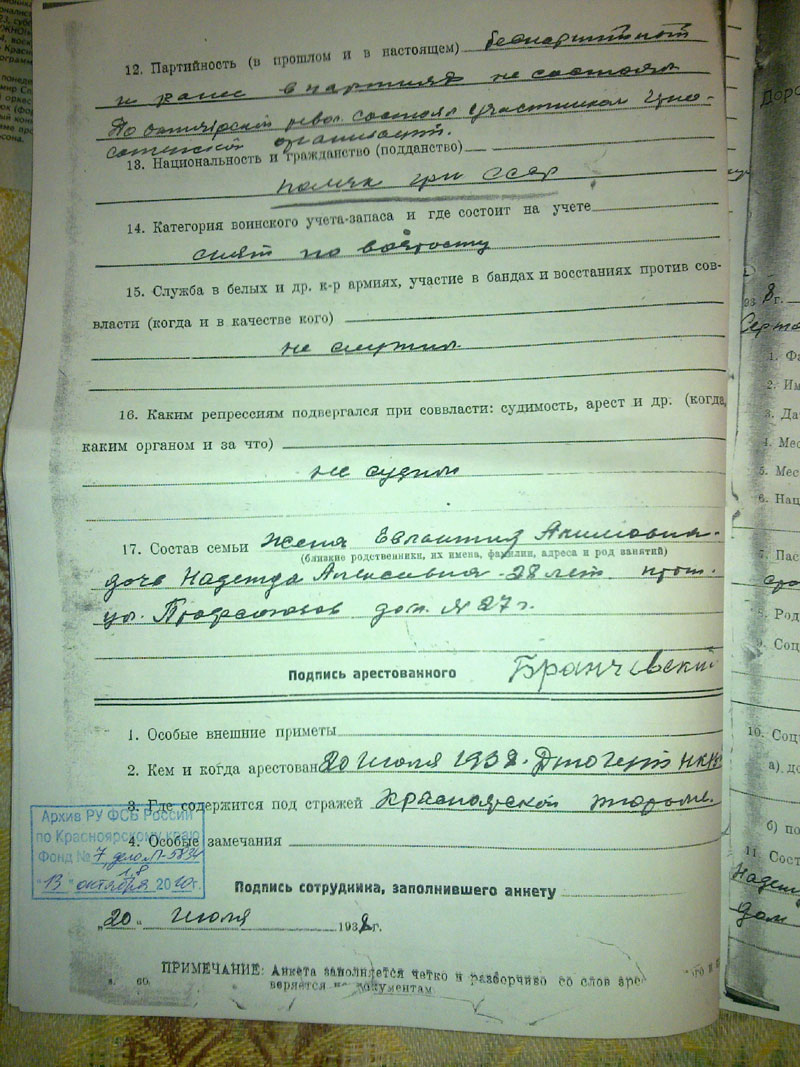 12. Партийность (в прошлом и в настоящем) беспартийный
и ранее в партиях не состоял
До октябрьской револ. состоял участником
организации.
13. Национальность и гражданство (подданство)
поляк гр. СССР
14. Категория воинского учета-запаса и где состоит на учете
снят по возрасту
15. Служба в белых и др. к-р армиях, участие в бандах и восстаниях против сов-
власти (когда и в качестве кого)
не служил
16. Каким репрессиям подвергался при соввласти: судимость, арест и др. (когда,
каким органом и за что)
не судим
17. Состав семьи жена Акимовна
(близкие родственники, их имена, фамилии, адреса и род занятий)
дочь Надежда Алексеевна - 28 лет прож.
ул. Профсоюзов дом. № 27
Подпись арестованного Бранчевский
1. Особые внешние приметы
2. Кем и когда арестован 20 июля 1938
3. Где содержится под стражей Красноярской тюрьме.
4. Особые замечания
Архив РУ ФСБ России
по Красноярскому краю
Фонд № 7, дело
"13" октября 2010 г.
Подпись сотрудника, заполнившего анкету
„20“ июля 1938 г.
ПРИМЕЧАНИЕ: Анкета заполняется четко и разборчиво со слов
веряется документам
8 г.
1. Фа
2. Им
3. Да
4. Мес
5. Мес
6. Нац
7. Пас
8. Род
9. Соц
10. Соц
а) до
б) по
11. Сост
дом